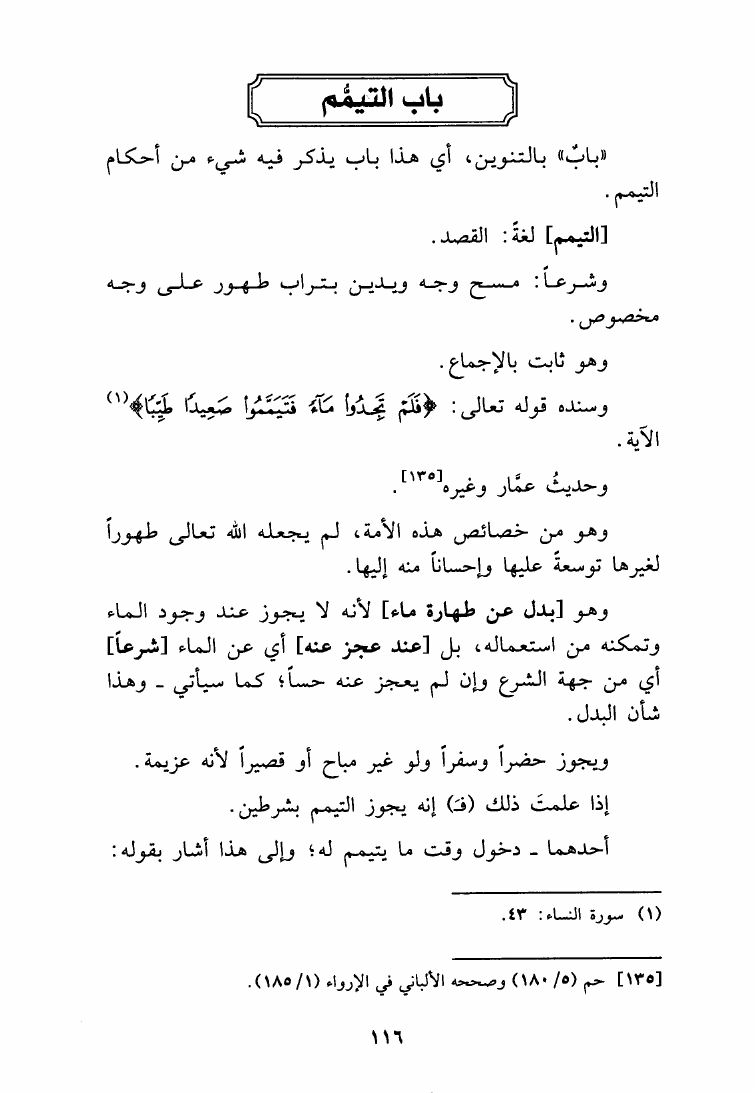 باب التيمُّم
«بابٌ» بالتنوين، أي هذا باب يذكر فيه شيء من أحكام
التيمم.
[التيمم] لغةً: القصد.
وشرعاً: مسح وجه ويدين بتراب طهور على وجه
مخصوص.
وهو ثابت بالإجماع.
وسنده قوله تعالى: ﴿فَلَمْ تَجِدُوا۟ مَآءً فَتَيَمَّمُوا۟ صَعِيدًا طَيِّبًا﴾(١)
الآية.
وحديثُ عمَّار وغيره[١٣٥].
وهو من خصائص هذه الأمة، لم يجعله الله تعالى طهوراً
لغيرها توسعةً عليها وإحساناً منه إليها.
وهو [بدل عن طهارة ماء] لأنه لا يجوز عند وجود الماء
وتمكنه من استعماله، بل [عند عجز عنه] أي عن الماء [شرعاً]
أي من جهة الشرع وإن لم يعجز عنه حساً؛ كما سيأتي ـ وهذا
شأن البدل.
ويجوز حضراً وسفراً ولو غير مباح أو قصيراً لأنه عزيمة.
إذا علمتَ ذلك (فَـ) إنه يجوز التيمم بشرطين.
أحدهما ـ دخول وقت ما يتيمم له؛ وإلى هذا أشار بقوله:
(١) سورة النساء: ٤٣.
[١٣٥] حم (٥/ ١٨٠) وصححه الألباني في الإرواء (١/ ١٨٥).
١١٦